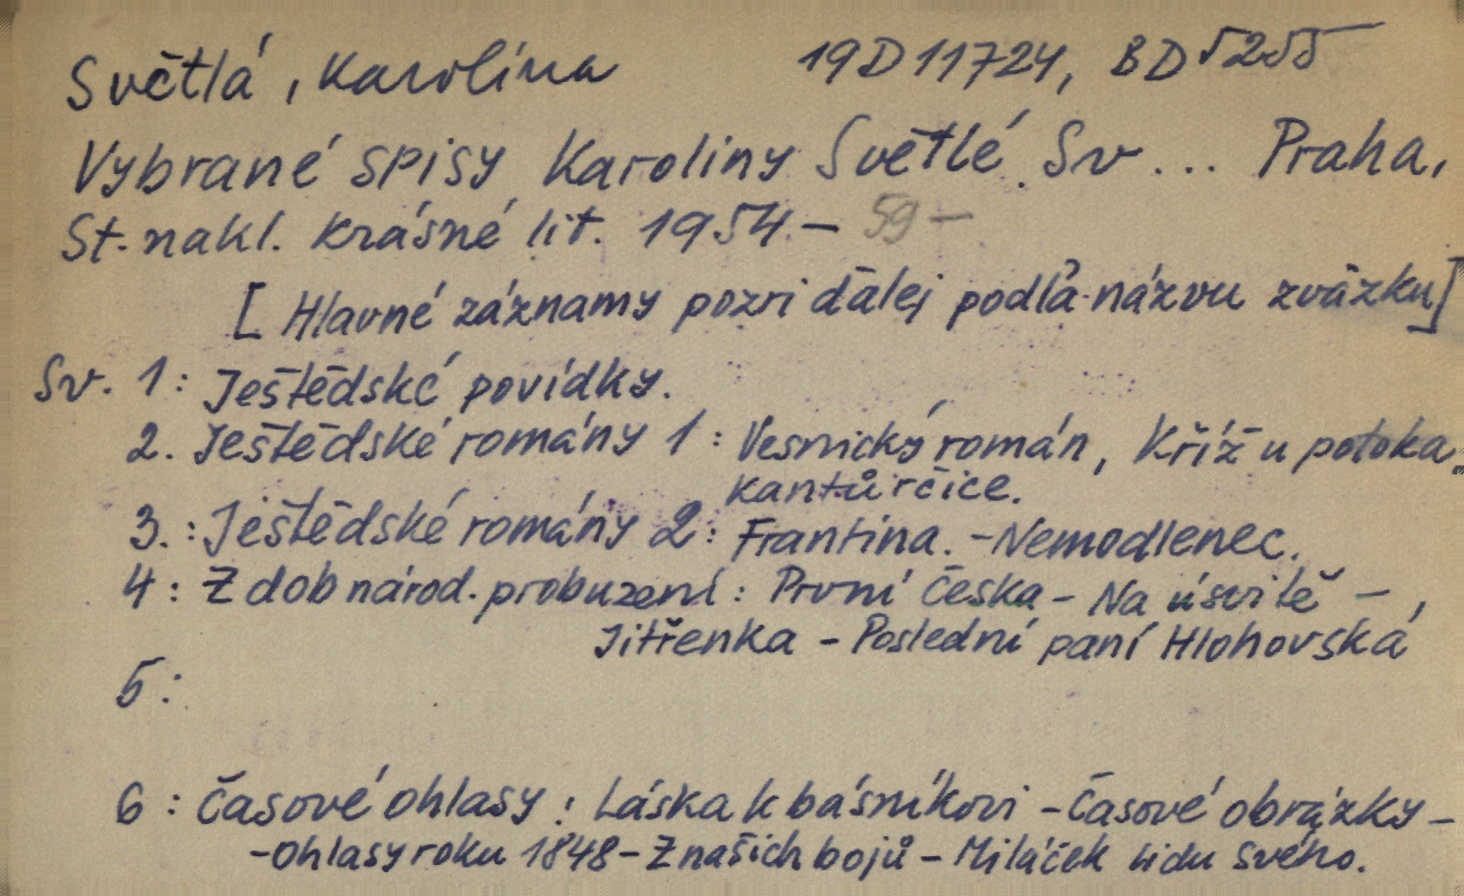 Světlá, Karolína 19D11724, BD5255
Vybrané spisy Karoliny Světlé. Sv... Praha,
St. nakl. krásné lit. 1954.- 59-
[Hlavné záznamy pozri ďalej podľa názvu zväzku]
Sv. 1: Ještědské povídky.
2. Ještědské romány 1: Vesnický román, Kříž u potoka.
Kantůrčice.
3.: Ještědské romány 2: Frantina. - Nemodlenec.
4: Z dob národ. probuzení: První Češka - Na úsvitě -,
Jitřenka - Poslední paní Hlohovská
5:
6: Časové ohlasy: Láska k básníkovi - Časové obrázky -
- Ohlasy roku 1848 - Z našich bojů - Miláček lidu svého.